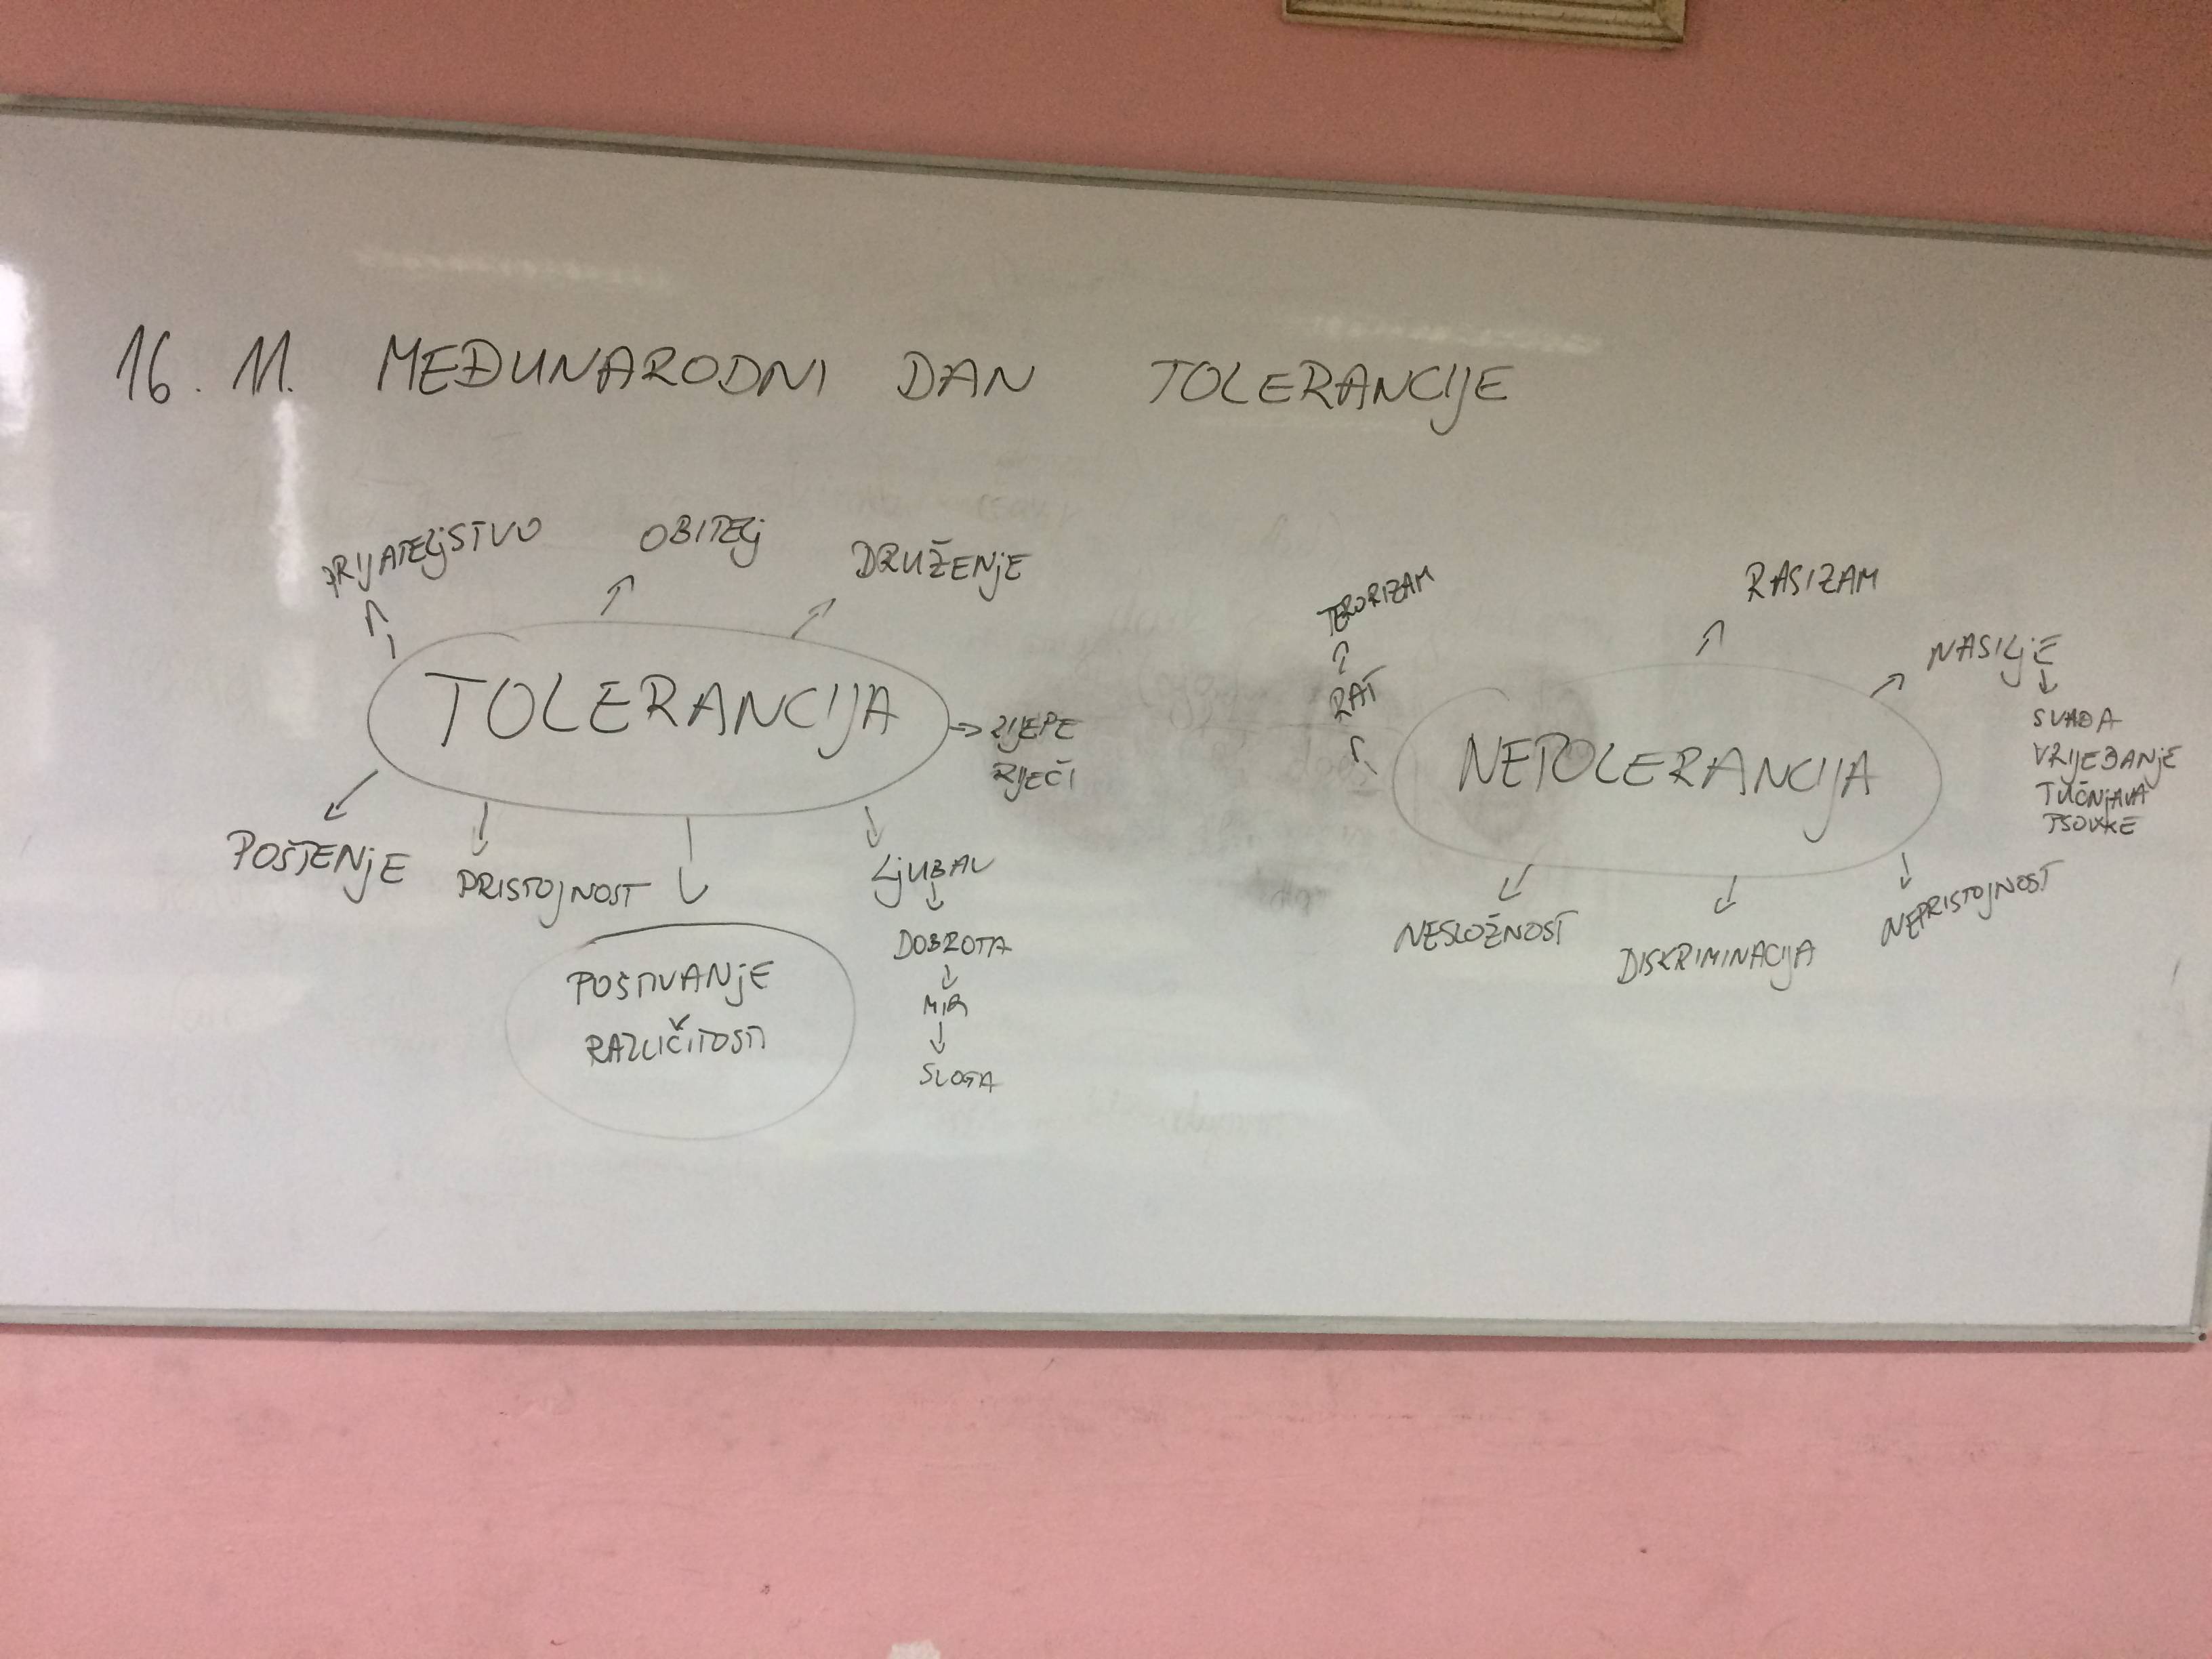 16. 11. MEĐUNARODNI DAN TOLERANCIJE
PRIJATELJSTVO
OBITELJ
DRUŽENJE
TOLERANCIJA
LIJEPE
RIJEČI
POŠTENJE
PRISTOJNOST
POŠTIVANJE
RAZLIČITOSTI
LJUBAV
DOBROTA
MIR
SLOGA
TERORIZAM
RAT
RASIZAM
NASILJE
SVAĐA
VRIJEĐANJE
TUČNJAVA
PSOVKE
NETOLERANCIJA
NESLOŽNOST
DISKRIMINACIJA
NEPRISTOJNOST